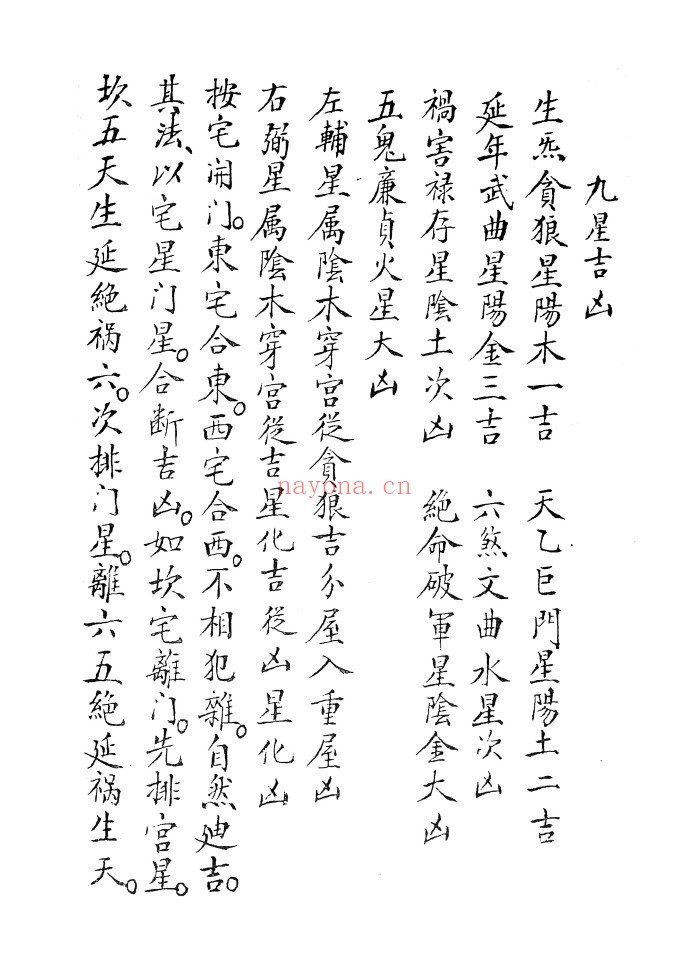 九星吉凶
生炁貪狼星陽木一吉　天乙巨門星陽土二吉
延年武曲星陽金三吉　六煞文曲水星次凶
禍害禄存星陰土次凶　絕命破軍星陰金大凶
五鬼廉貞火星大凶
左輔星属陰木穿宫從貪狼吉分屋入重屋凶
右弼星属陰木穿宫從吉星化吉從凶星化凶
按宅開门。東宅合東。西宅合西。不相犯雜。自然迪吉。
其法、以宅星门星。合断吉凶。如坎宅離门。先排宫星。
坎五天生延絕祸六。次排门星。離六五絕延祸生天。
nayona.cn